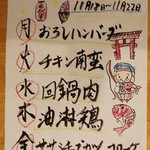 11月18日〜11月22日
月 おろしハンバーグ
火 チキン南蛮
水 回鍋肉
木 油淋鶏
金 ササミチーズカツ